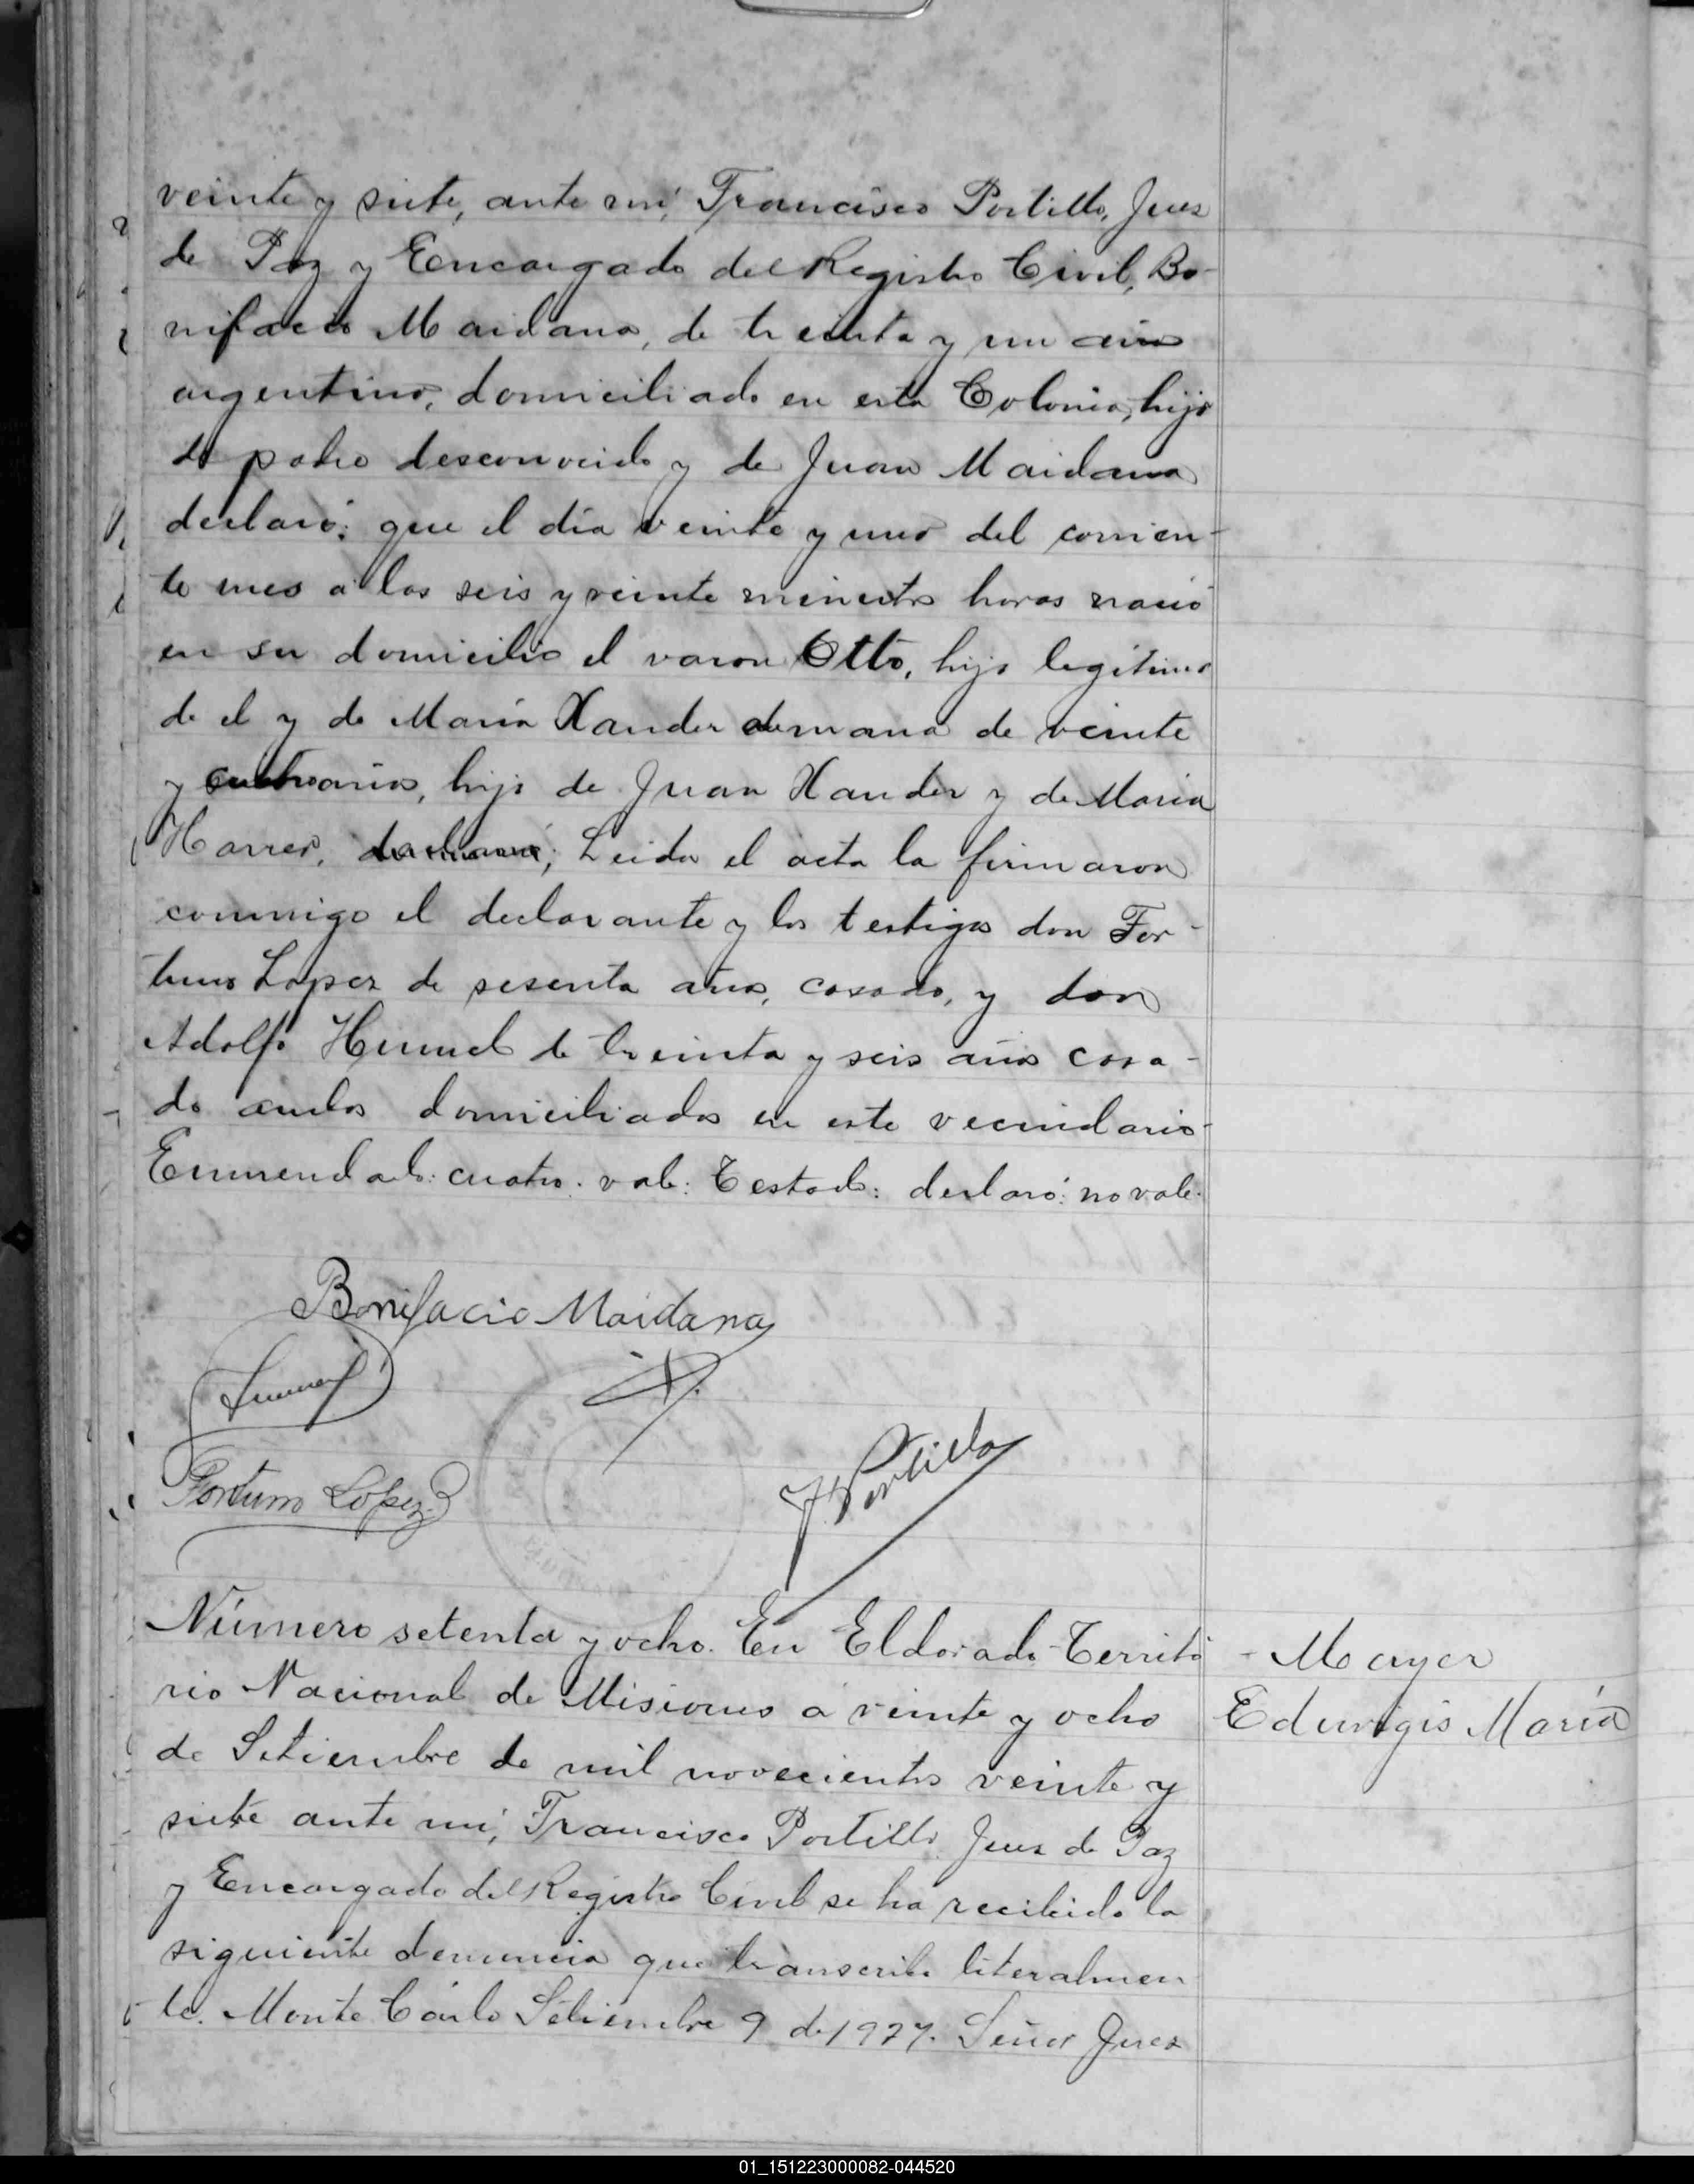 veinte y siete, ante mí, Francisco Portillo, Juez
de Paz y Encargado del Registro Civil, Bo-
nifacio Maidana, de treinta y un años
argentino, domiciliado en esta Colonia, hijo
de padre desconocido y de Juana Maidana
declaró: que el día veinte y uno del corrien-
te mes á las seis y veinte minutos horas nació
en su domicilio el varon Otto, hijo legítimo
de el y de María Xander alemana de veinte
y cuatro años, hija de Juan Xander y de María
Harrer, declaró; Leida el acta la firmaron
conmigo el declarante y los testigos don For-
tuno Lopez de sesenta años, casado, y don
Adolfo de treinta y seis años casa-
do ambos domiciliados en este vecindario-
Enmendado: cuatro: vale: Testado: declaró: no vale.
Bonifacio Maidana
Fortuno Lopez
F Portillo
Número setenta y ocho. En Eldorado Territo
rio Nacional de Misiones á veinte y ocho
de Setiembre de mil novecientos veinte y
siete ante mí, Francisco Portillo Juez de Paz
y Encargado del Registro Civil se ha recibido la
siguiente denuncia que transcribo literalmen
te. Monte Carlo Setiembre 9 de 1927. Señor Juez
- Mayer
Eduvigis María
01_151223000082-044520